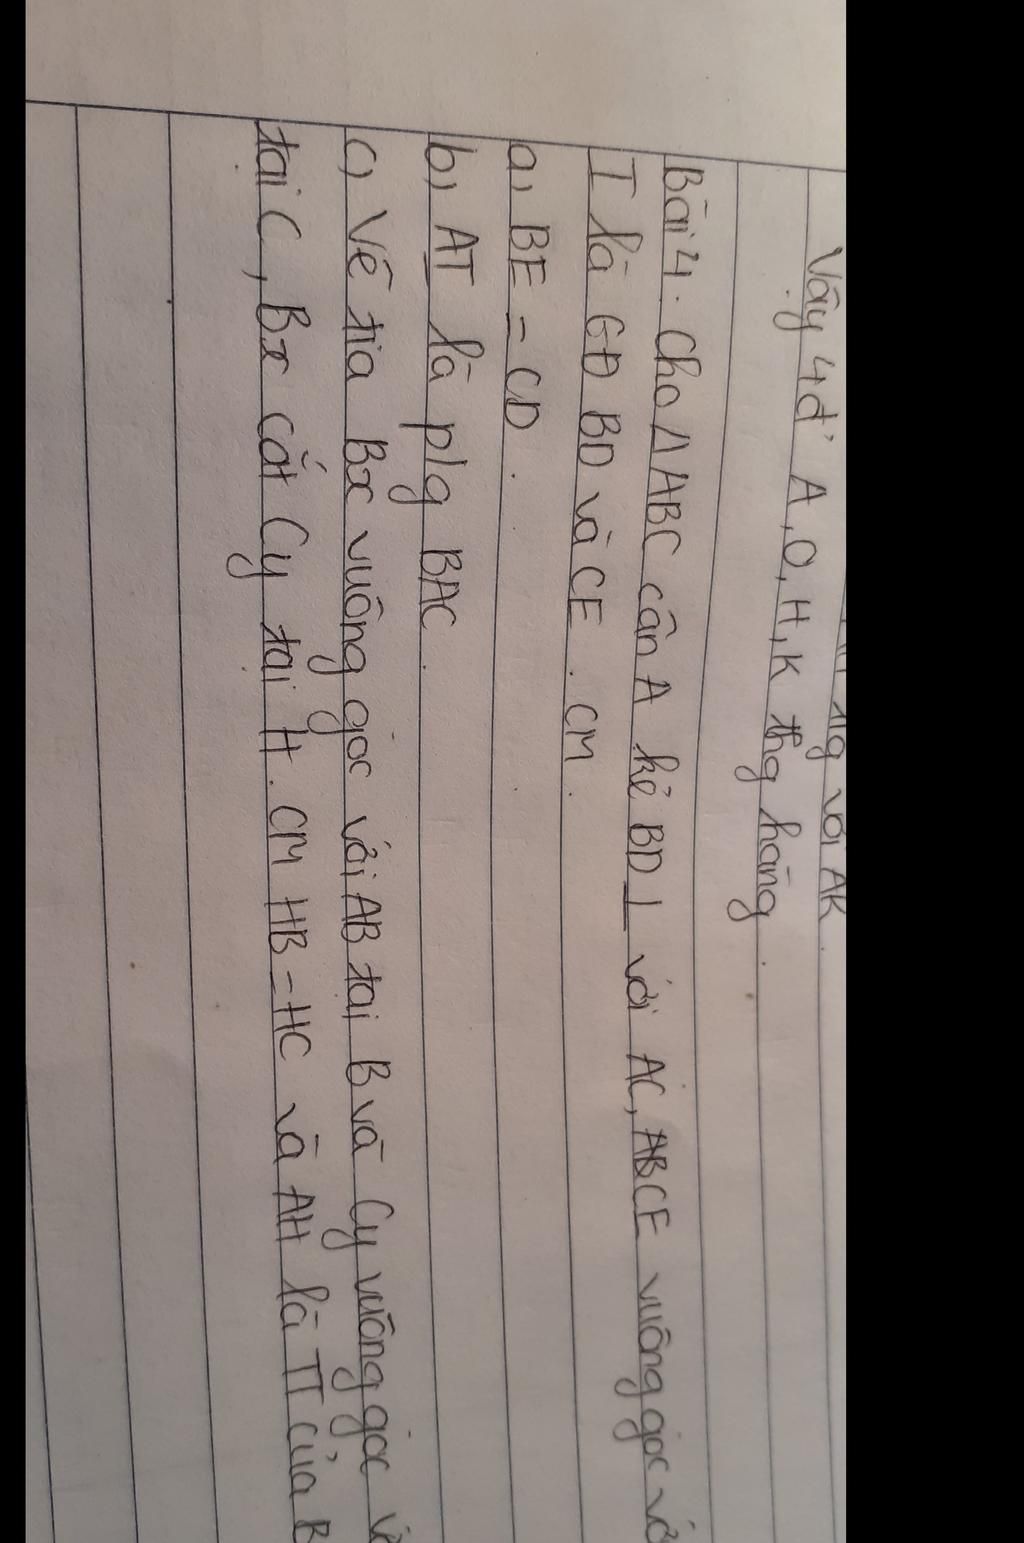 với AK.
Vậy 4đ' A, O, H, K thg hàng.
Bài 4. Cho ΔABC cân A kẻ BD ⊥ với AC, ABCE vuông góc với
I là GĐ BD và CE. CM.
a, BE = CD.
b, AI là p/g BAC.
c) Vẽ tia Bx vuông góc với AB tại B và Cy vuông góc
tại C, Bx cắt Cy tại H. CM HB = HC và AH là TT của B